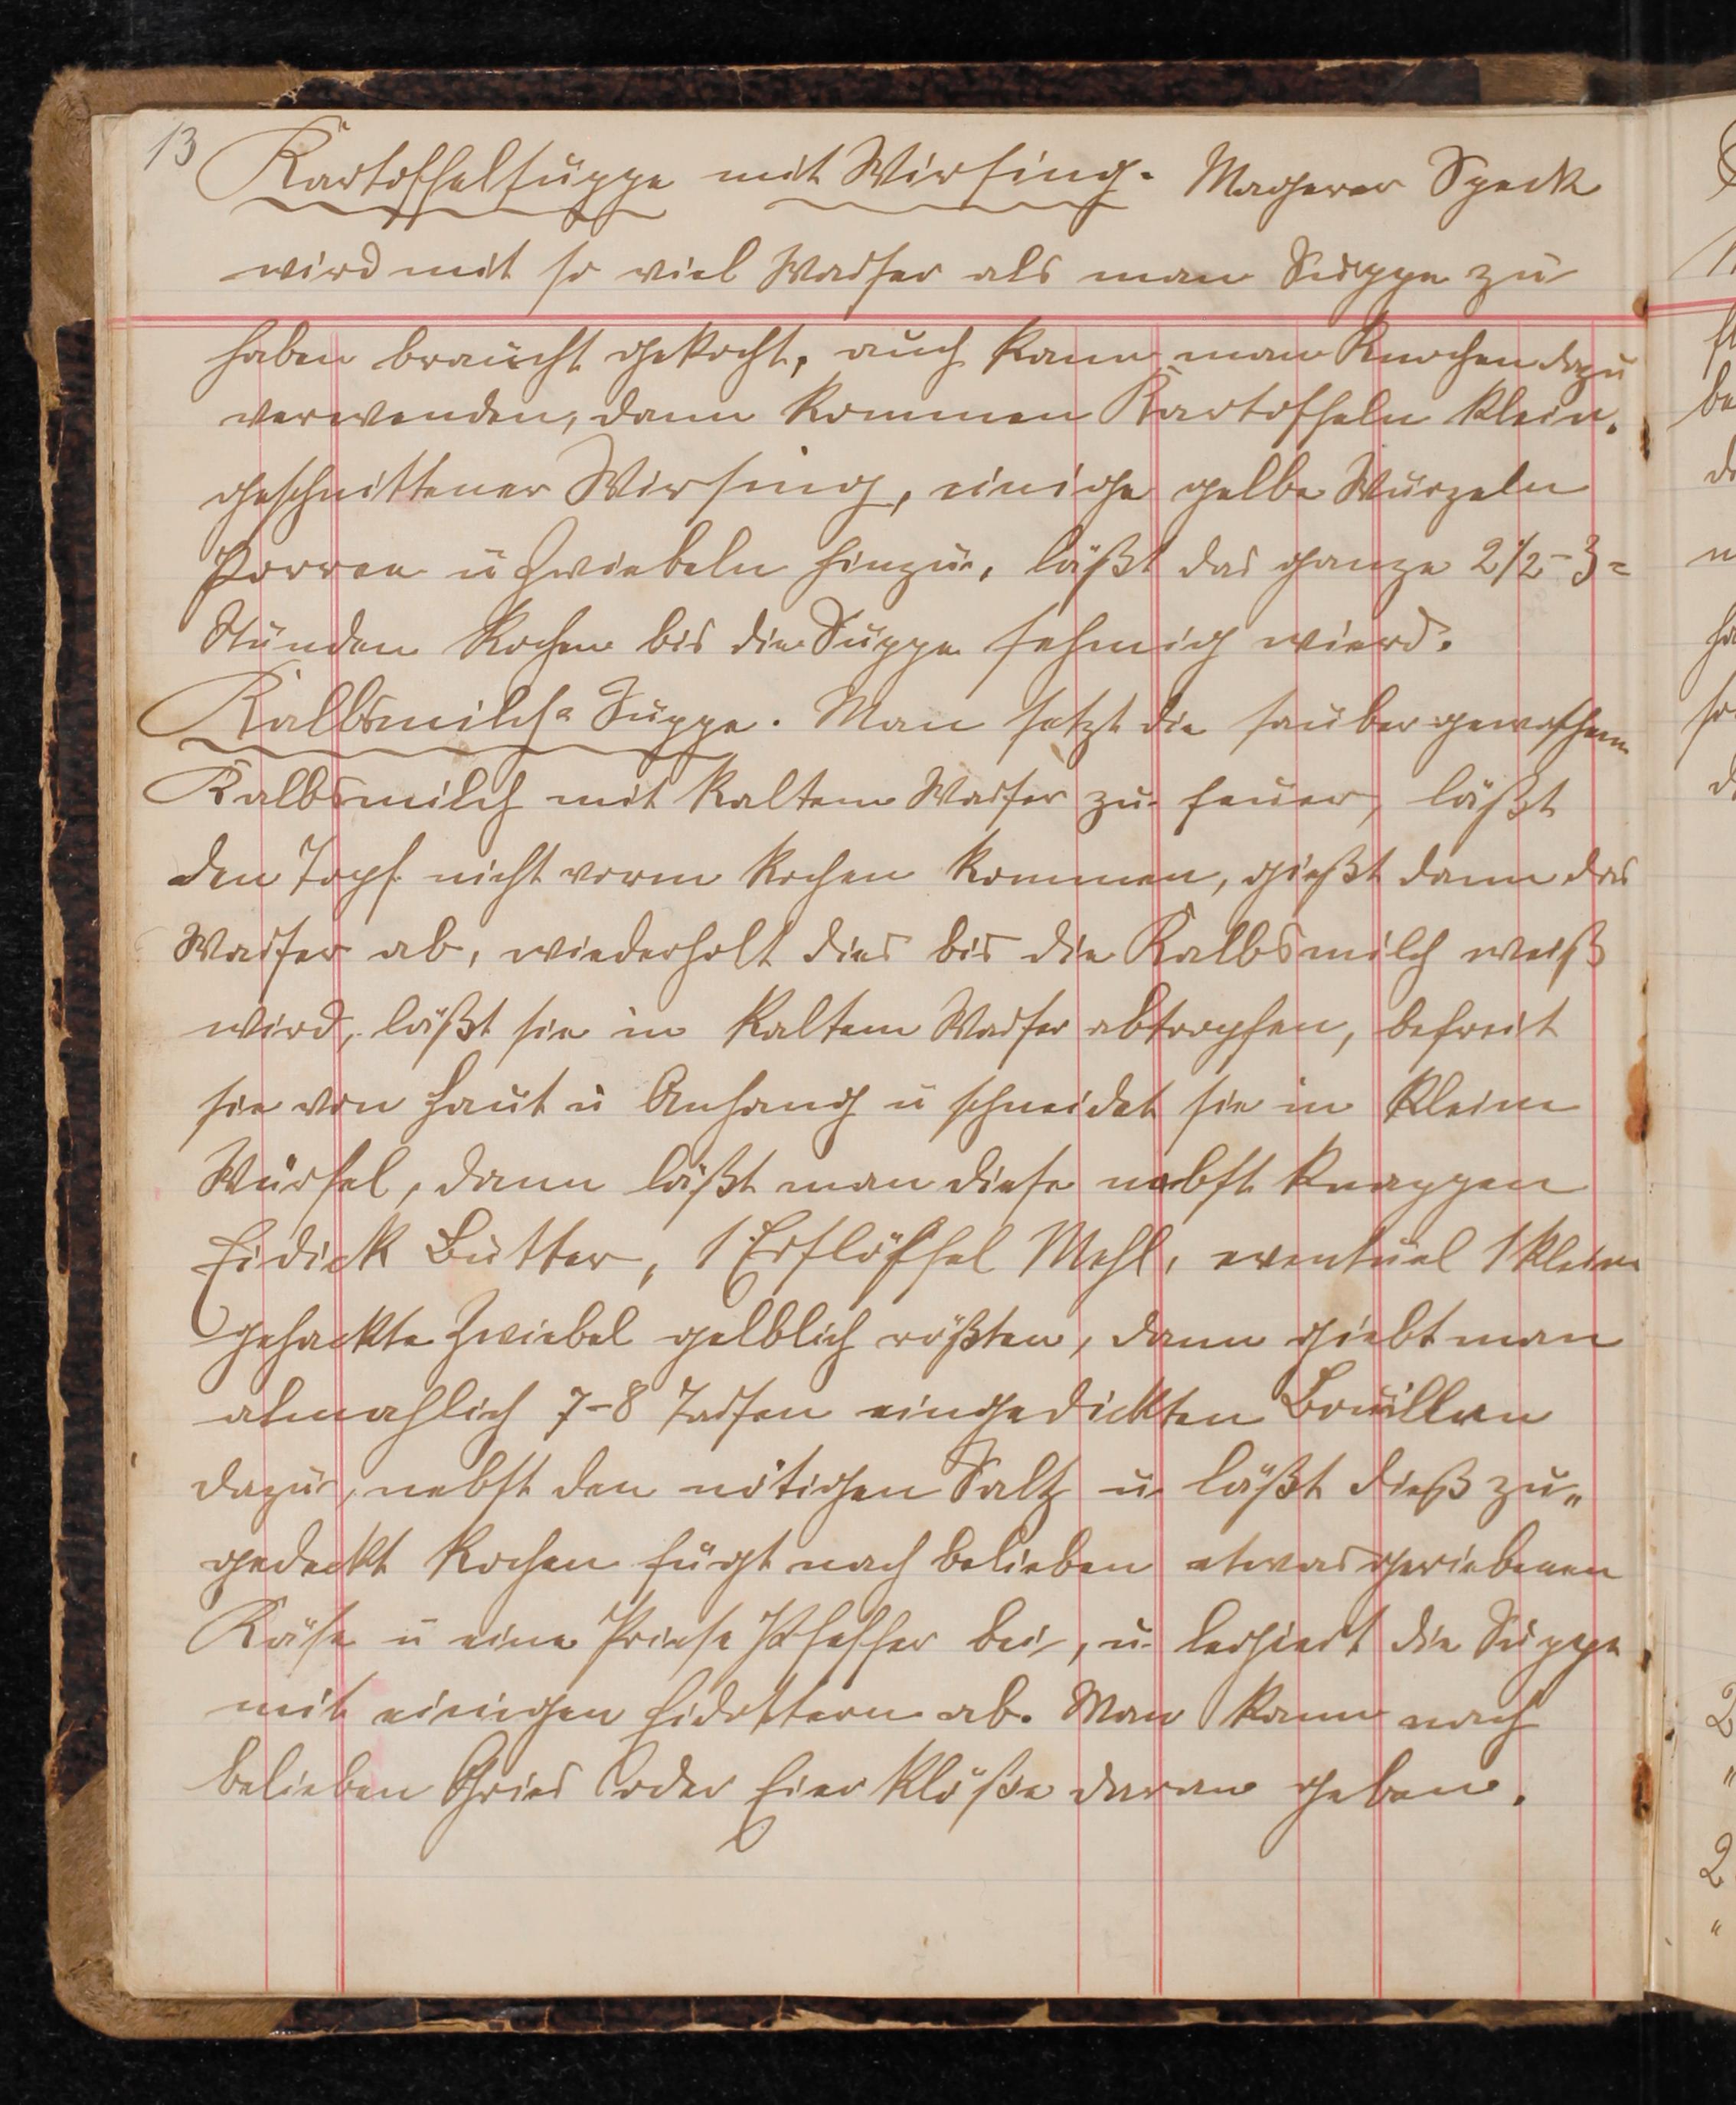 13
Kartoffelsuppe mit Wirsing. Magerer Speck
wird mit so viel Wasser als man Suppe zu
haben braucht gekocht, auch kann man Knochen dazu
verwenden, dann kommen Kartoffeln klein-
geschnittener Wirsing, einige gelbe Wurzeln
Porree u Zwiebeln hinzu, läßt das ganze 2½-3=
Stunden kochen bis die Suppe sehmig wierd.
Kalbsmilch= Suppe. Man setzt die sauber gewaschene
Kalbsmilch mit kaltem Wasser zu feuer, läßt
den Topf nicht vorm kochen kommen, gießt dann das
Wasser ab, wiederholt dies bis die Kalbsmilch weiß
wird, läßt sie in kaltem Wasser abtropfen, befreit
sie von Haut u Anhang u schneidet sie in kleine
Würfel, dann läßt man diese nebst knappen
Eidick Butter, 1 Esslöffel Mehl, eventuel 1 kleine
gehackte Zwiebel gelblich rößten, dann giebt man
almahlich 7-8 Tassen eingedickten Bouillon
dazu, nebst den nötigen Saltz u läßt dieß zu„
gedeckt kochen fügt nach belieben etwas geriebenen
Käse u eine Priese Pfeffer bei, u. legiert die Suppe
mit einigen Eidottern ab. Man kann nach
belieben Gries oder Eier klöße daran geben.